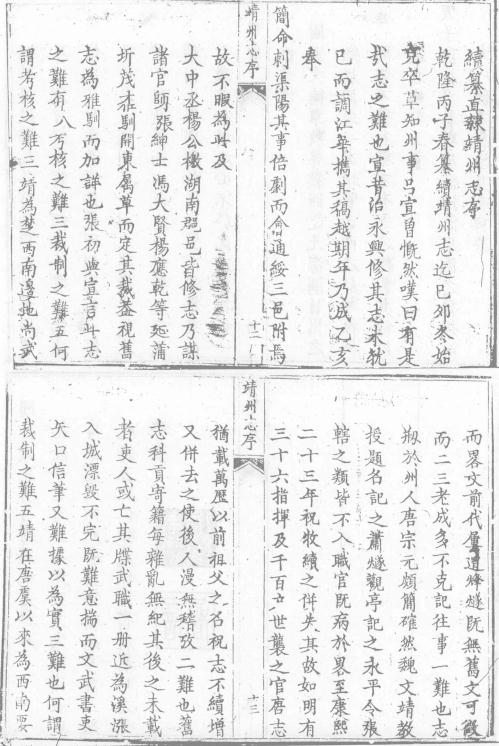 續纂直隸靖州志序
乾隆丙子春纂續靖州志迄己卯冬始
克卒草知州事呂宣曾慨然嘆曰有是
哉志之難也宣昔治永興修其志未就
已而調江華携其稿越期年乃成乙亥
奉
簡命刺渠陽其事倍劇而會通綏三邑附焉
故不暇為此及
大中丞楊公檄湖南郡邑皆修志乃謀
諸官師張紳士馮大賢楊應乾等延蒲
圻茂才馴開東属草而定其裁益視舊
志為雅馴而加詳也張初與宣言此志
之難有八考核之難三裁制之難五何
謂考核之難三靖為楚西南邊地尚武
靖州志序
十二
而畧文前代屢遭烽燧既無舊文可徵
而二三老成多不克記往事一難也志
刱於州人唐宗元頗簡確然魏文靖教
授題名記之蕭燧觀亭記之永平令張
轄之類皆不入職官既病於畧至康熙
二十三年祝牧續之併失其故如明有
三十六指揮及千百户世襲之官唐志
猶載萬歷以前祖父之名祝志不續增
又併去之使後人漫無稽攷二難也舊
志科貢寄籍每雜亂無紀其後之未載
者吏人或亡其牒武職一册近為溪漲
入城漂毀不完既難意揣而文武書吏
矢口信筆又難據以為實三難也何謂
裁制之難五靖在唐虞以來為西南要
靖州志序
十三